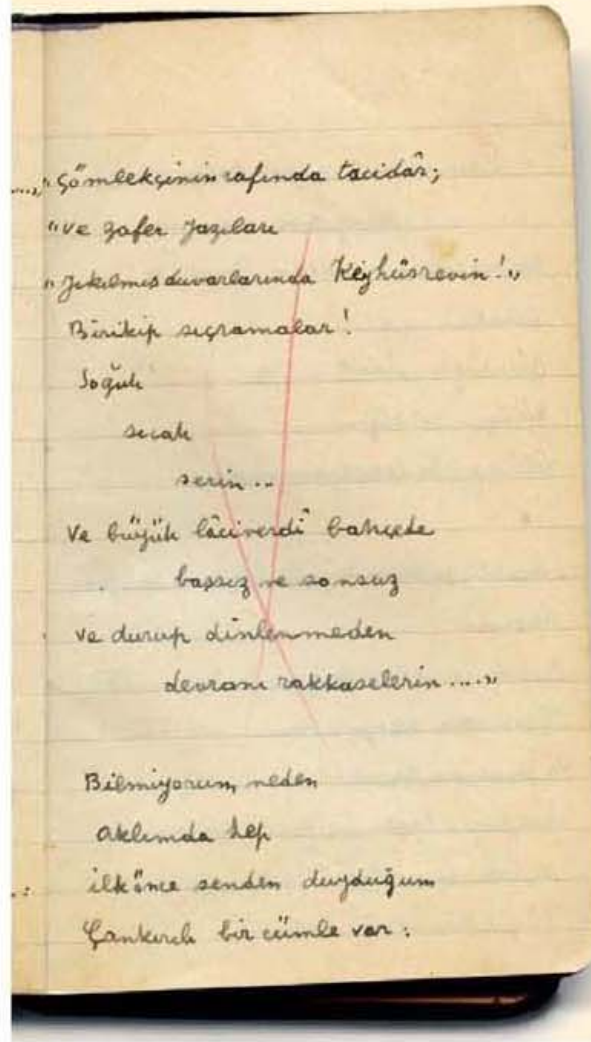 ...." Çömlekçinin rafında tacidâr;
"ve zafer yazıları
"yıkılmış duvarlarında Keyhüsrevin!"
Birikip sıçramalar!
Soğuk
sıcak
serin..
Ve büyük lâciverdî bahçede
başsız ve sonsuz
ve durup dinlenmeden
devranı rakkaselerin...."
Bilmiyorum, neden
aklımda hep
ilkönce senden duyduğum
Çankırılı bir cümle var: